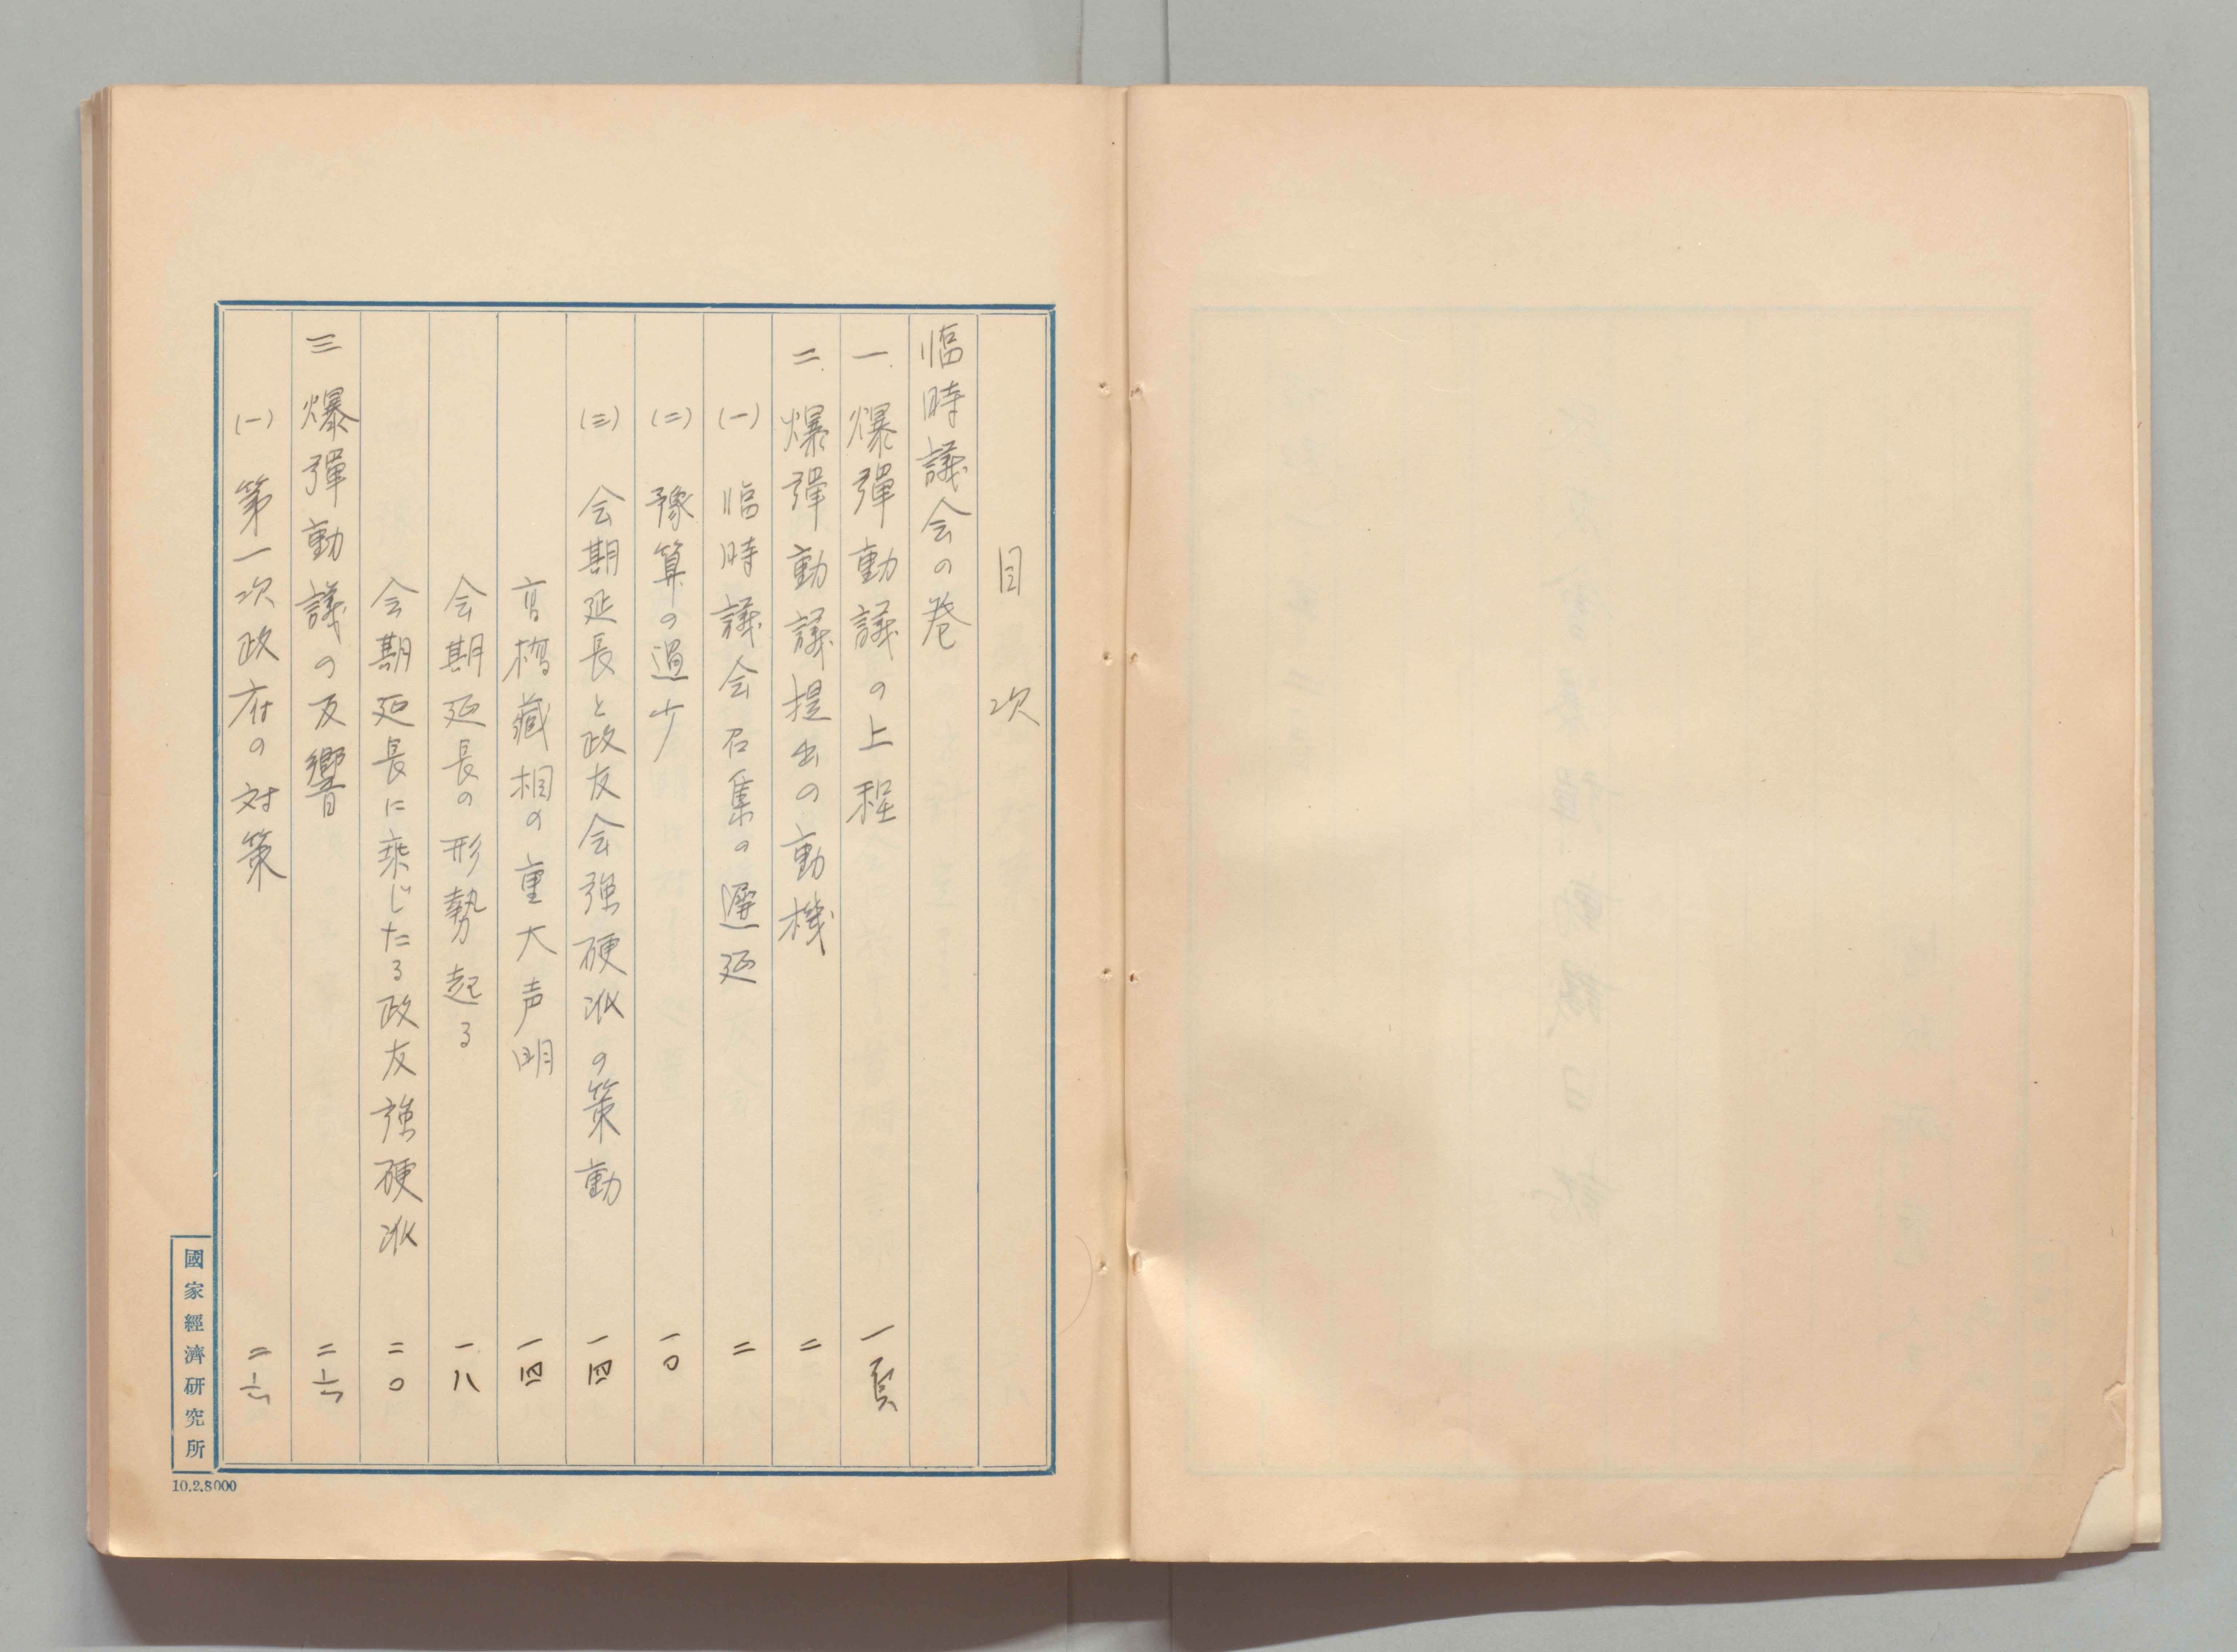 目次
臨時議会の巻
一、爆彈動議の上程 一頁
二、爆彈動議提出の動機 二
(一) 臨時議会召集の遲延 二
(二) 豫算の過少 一〇
(三) 会期延長と政友会強硬派の策動 一四
高橋藏相の重大声明 一四
会期延長の形勢起る 一八
会期延長に乘じたる政友強硬派 二〇
三 爆彈動議の反響 二六
(一) 第一次政府の対策 二六
國家經濟研究所
10.2.8000